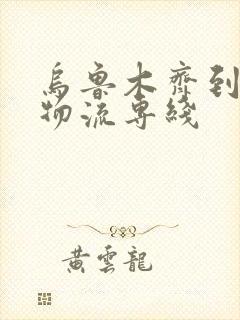 烏魯木齊到
物流專綫
黃雲龍